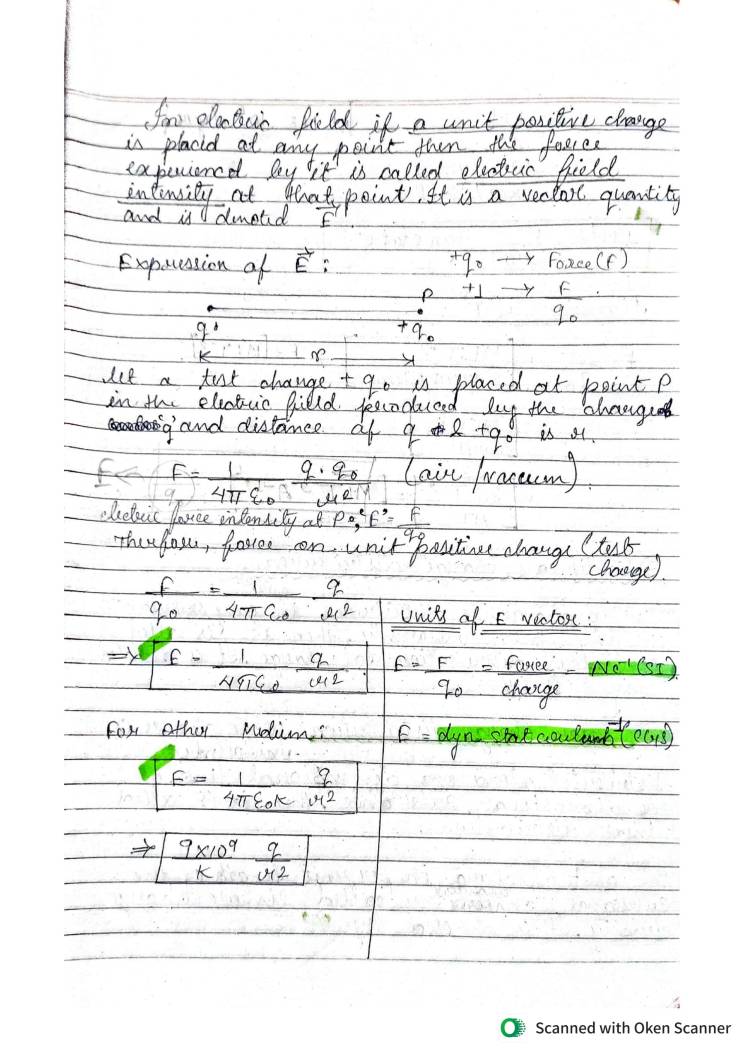 In electric field if a unit positive charge
is placid at any point then the force
experienced by it is called electric field
intensity at that point. It is a vector quantity
and is denoted E⃗.
Expression of E⃗ :
+q₀ → Force (F)
P +1 → F/q₀
q +q₀
r
let a test charge + q₀ is placed at point P
in the electric field produced by the charge
'q' and distance of q & +q₀ is r.
F = 1/4πε₀ q.q₀/r² (air / vaccum)
electric force intensity at P, 'E' = F/q₀
Therefore, force on unit positive charge (test
charge).
F/q₀ = 1/4πε₀ q/r²
⇒ E = 1/4πε₀ q/r²
For other Medium :
E = 1/4πε₀K q/r²
⇒ 9×10⁹/K q/r²
Units of E vector :
E = F/q₀ = Force/charge = NC⁻¹ (SI)
E = dyn statcoulomb⁻¹ (CGS)
Scanned with Oken Scanner